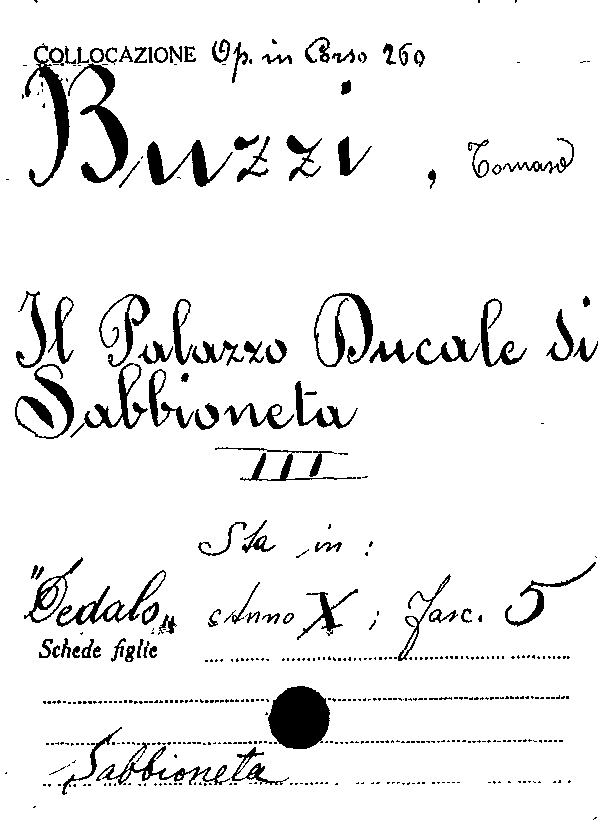 COLLOCAZIONE Op. in Corso 260
Buzzi, Tomaso
Il Palazzo Ducale di
Sabbioneta
III
Sta in:
"Dedalo„ Anno X; Fasc. 5
Schede figlie
Sabbioneta